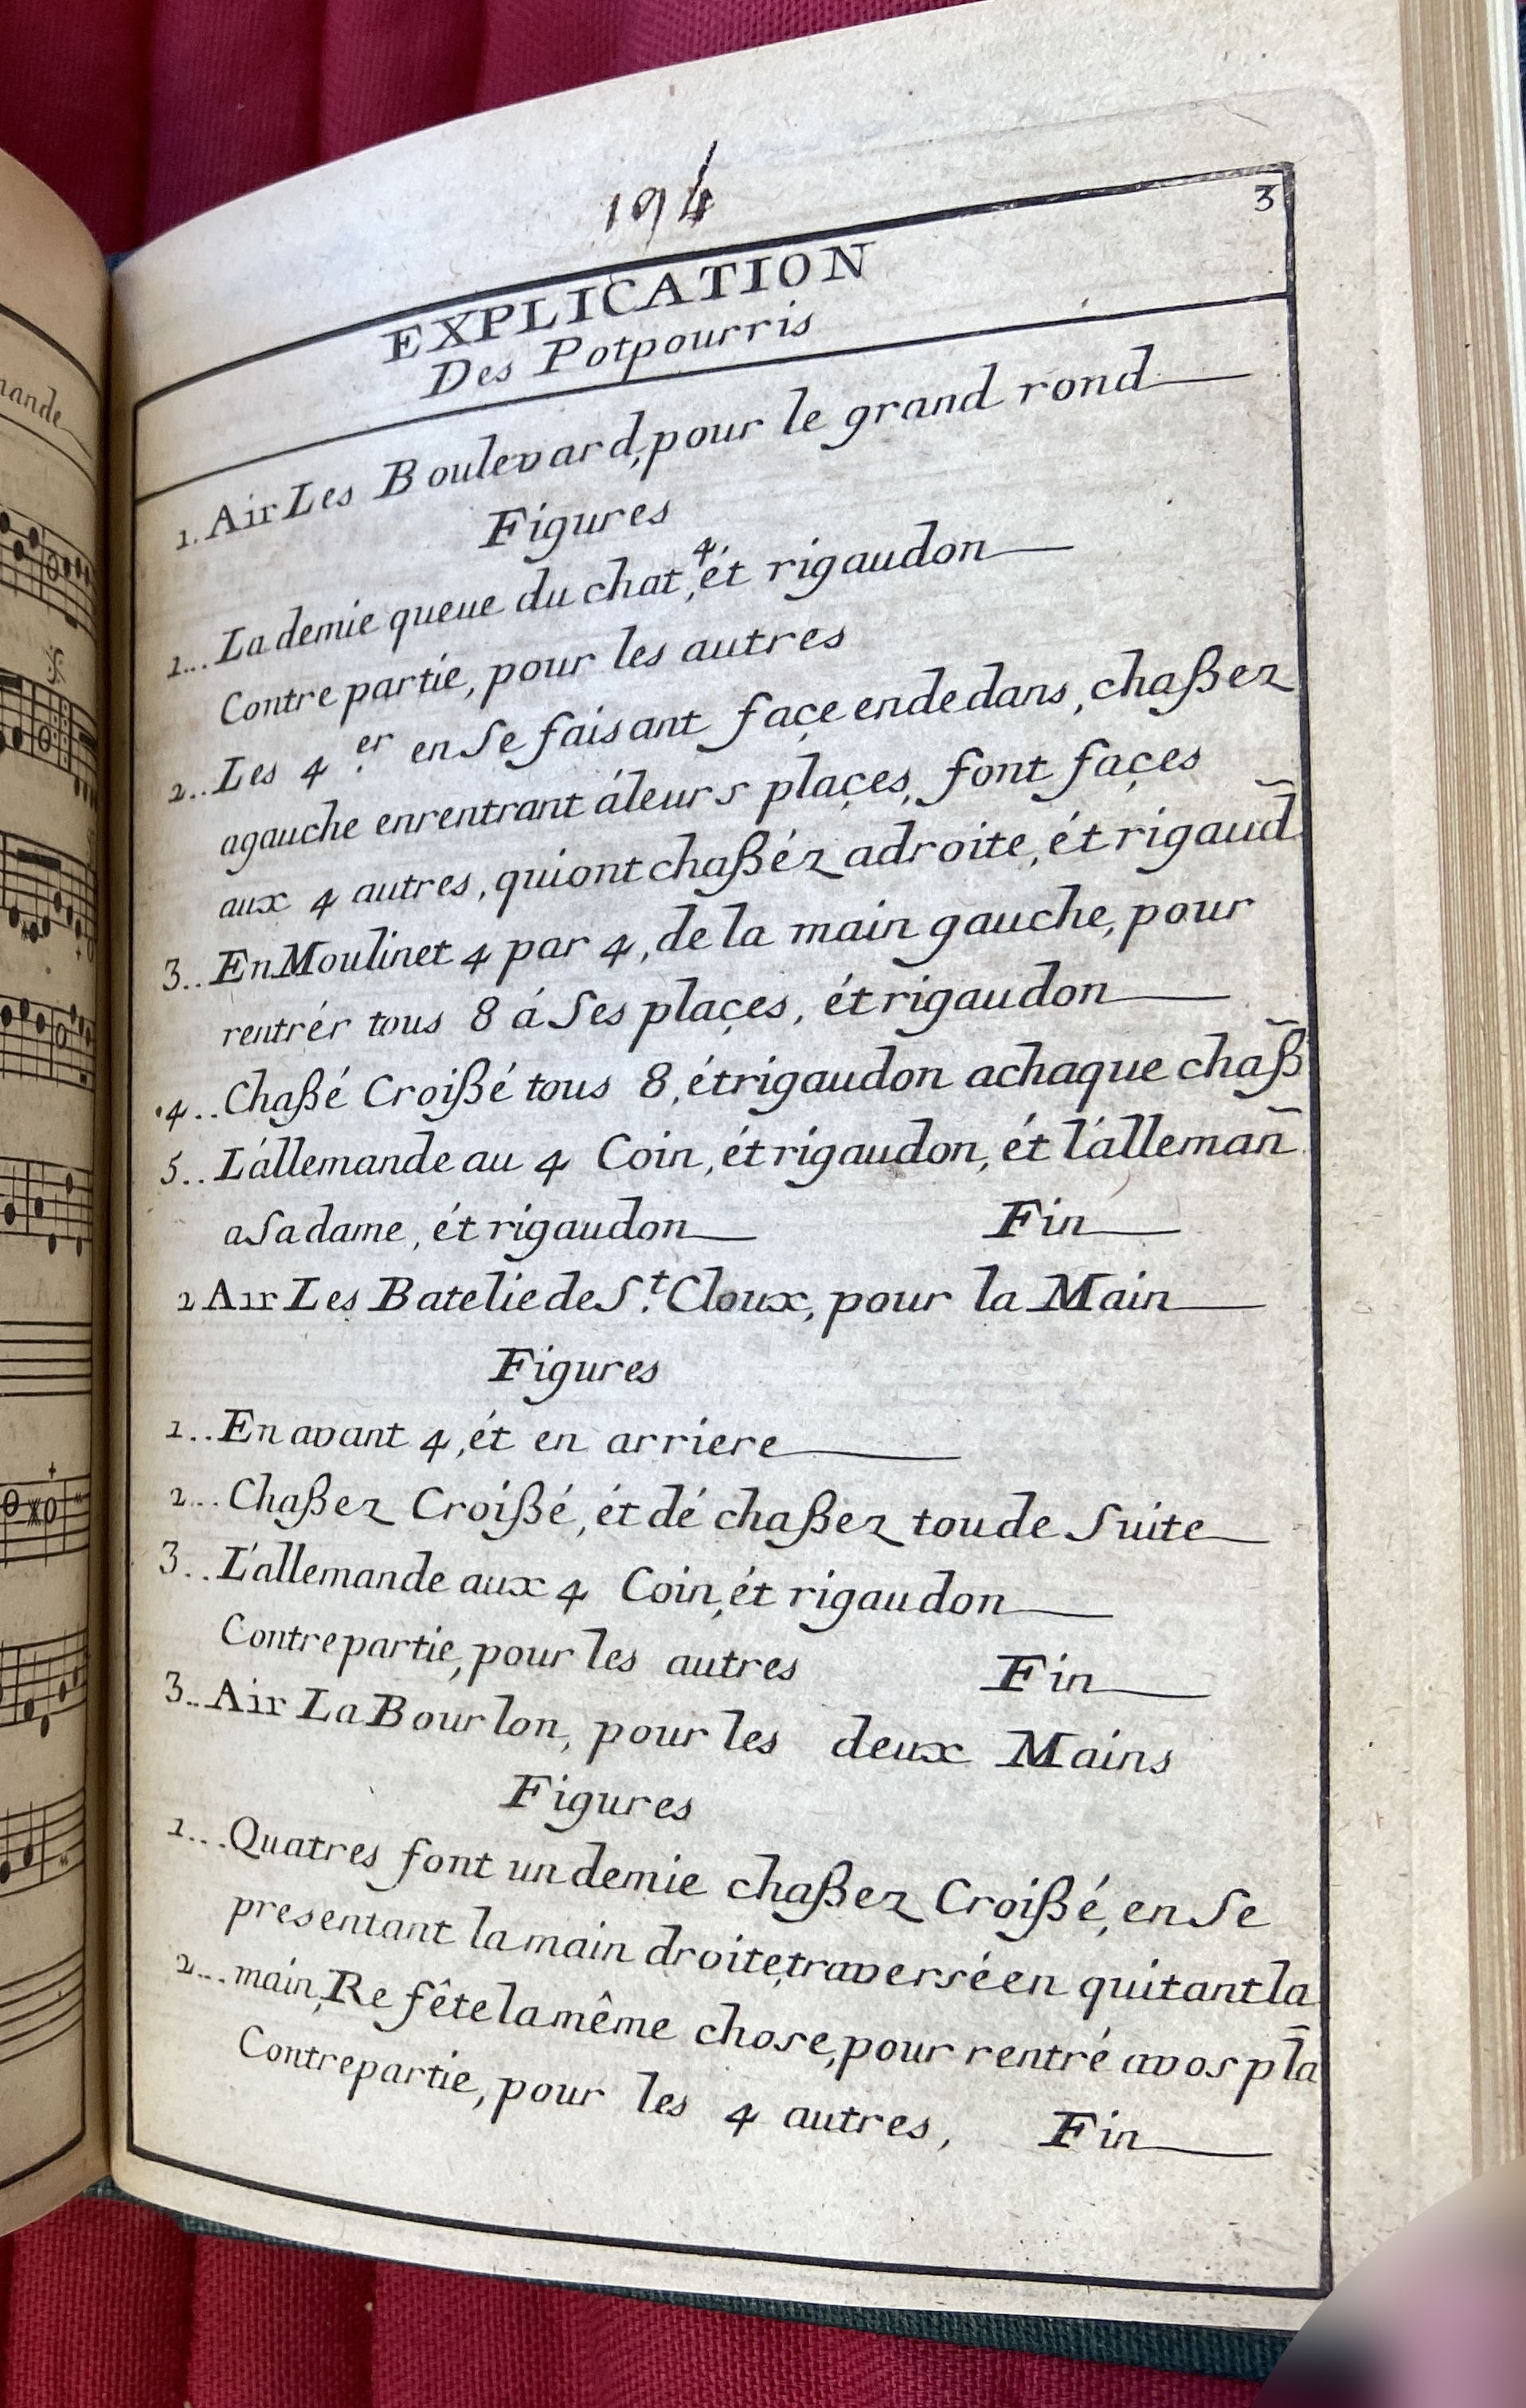 194
3
EXPLICATION
Des Potpourris
1. Air Les Boulevard, pour le grand rond
Figures
1... La demie queue du chat, 4. ét rigaudon
Contre partie, pour les autres
2.. Les 4.er en Se faisant façe endedans, chaßez
agauche enrentrant áleurs plaçes, font façes
aux 4 autres, quiont chaßéz adroite, ét rigaud̃
3.. En Moulinet 4 par 4, de la main gauche, pour
rentrér tous 8 á Ses plaçes, ét rigaudon
4.. Chaßé Croißé tous 8, ét rigaudon achaque chaß̃
5.. L'állemande au 4 Coin, ét rigaudon, ét l'állemañ
aSadame, ét rigaudon Fin
2 Air Les Batelie de S.t Cloux, pour la Main
Figures
1.. En avant 4, ét en arriere
2... Chaßez Croißé, ét dé chaßez toude Suite
3.. L'allemande aux 4 Coin, ét rigaudon
Contrepartie, pour les autres Fin
3.. Air La Bourlon, pour les deux Mains
Figures
1... Quatres font un demie chaßez Croißé, en Se
presentant la main droite, traversé en quitant la
2... main, Re fête la même chose, pour rentré avos pla̅
Contrepartie, pour les 4 autres, Fin